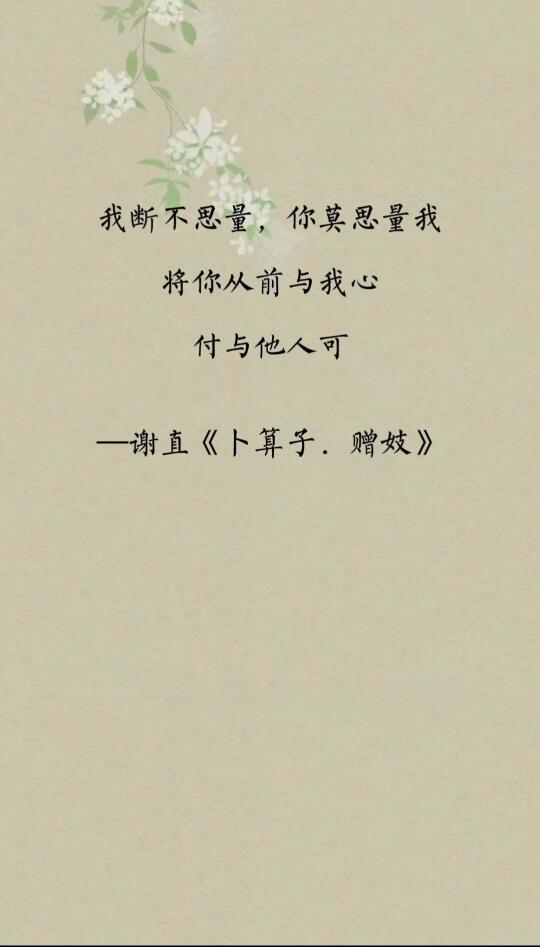 我断不思量，你莫思量我
将你从前与我心
付与他人可
—谢直《卜算子．赠妓》